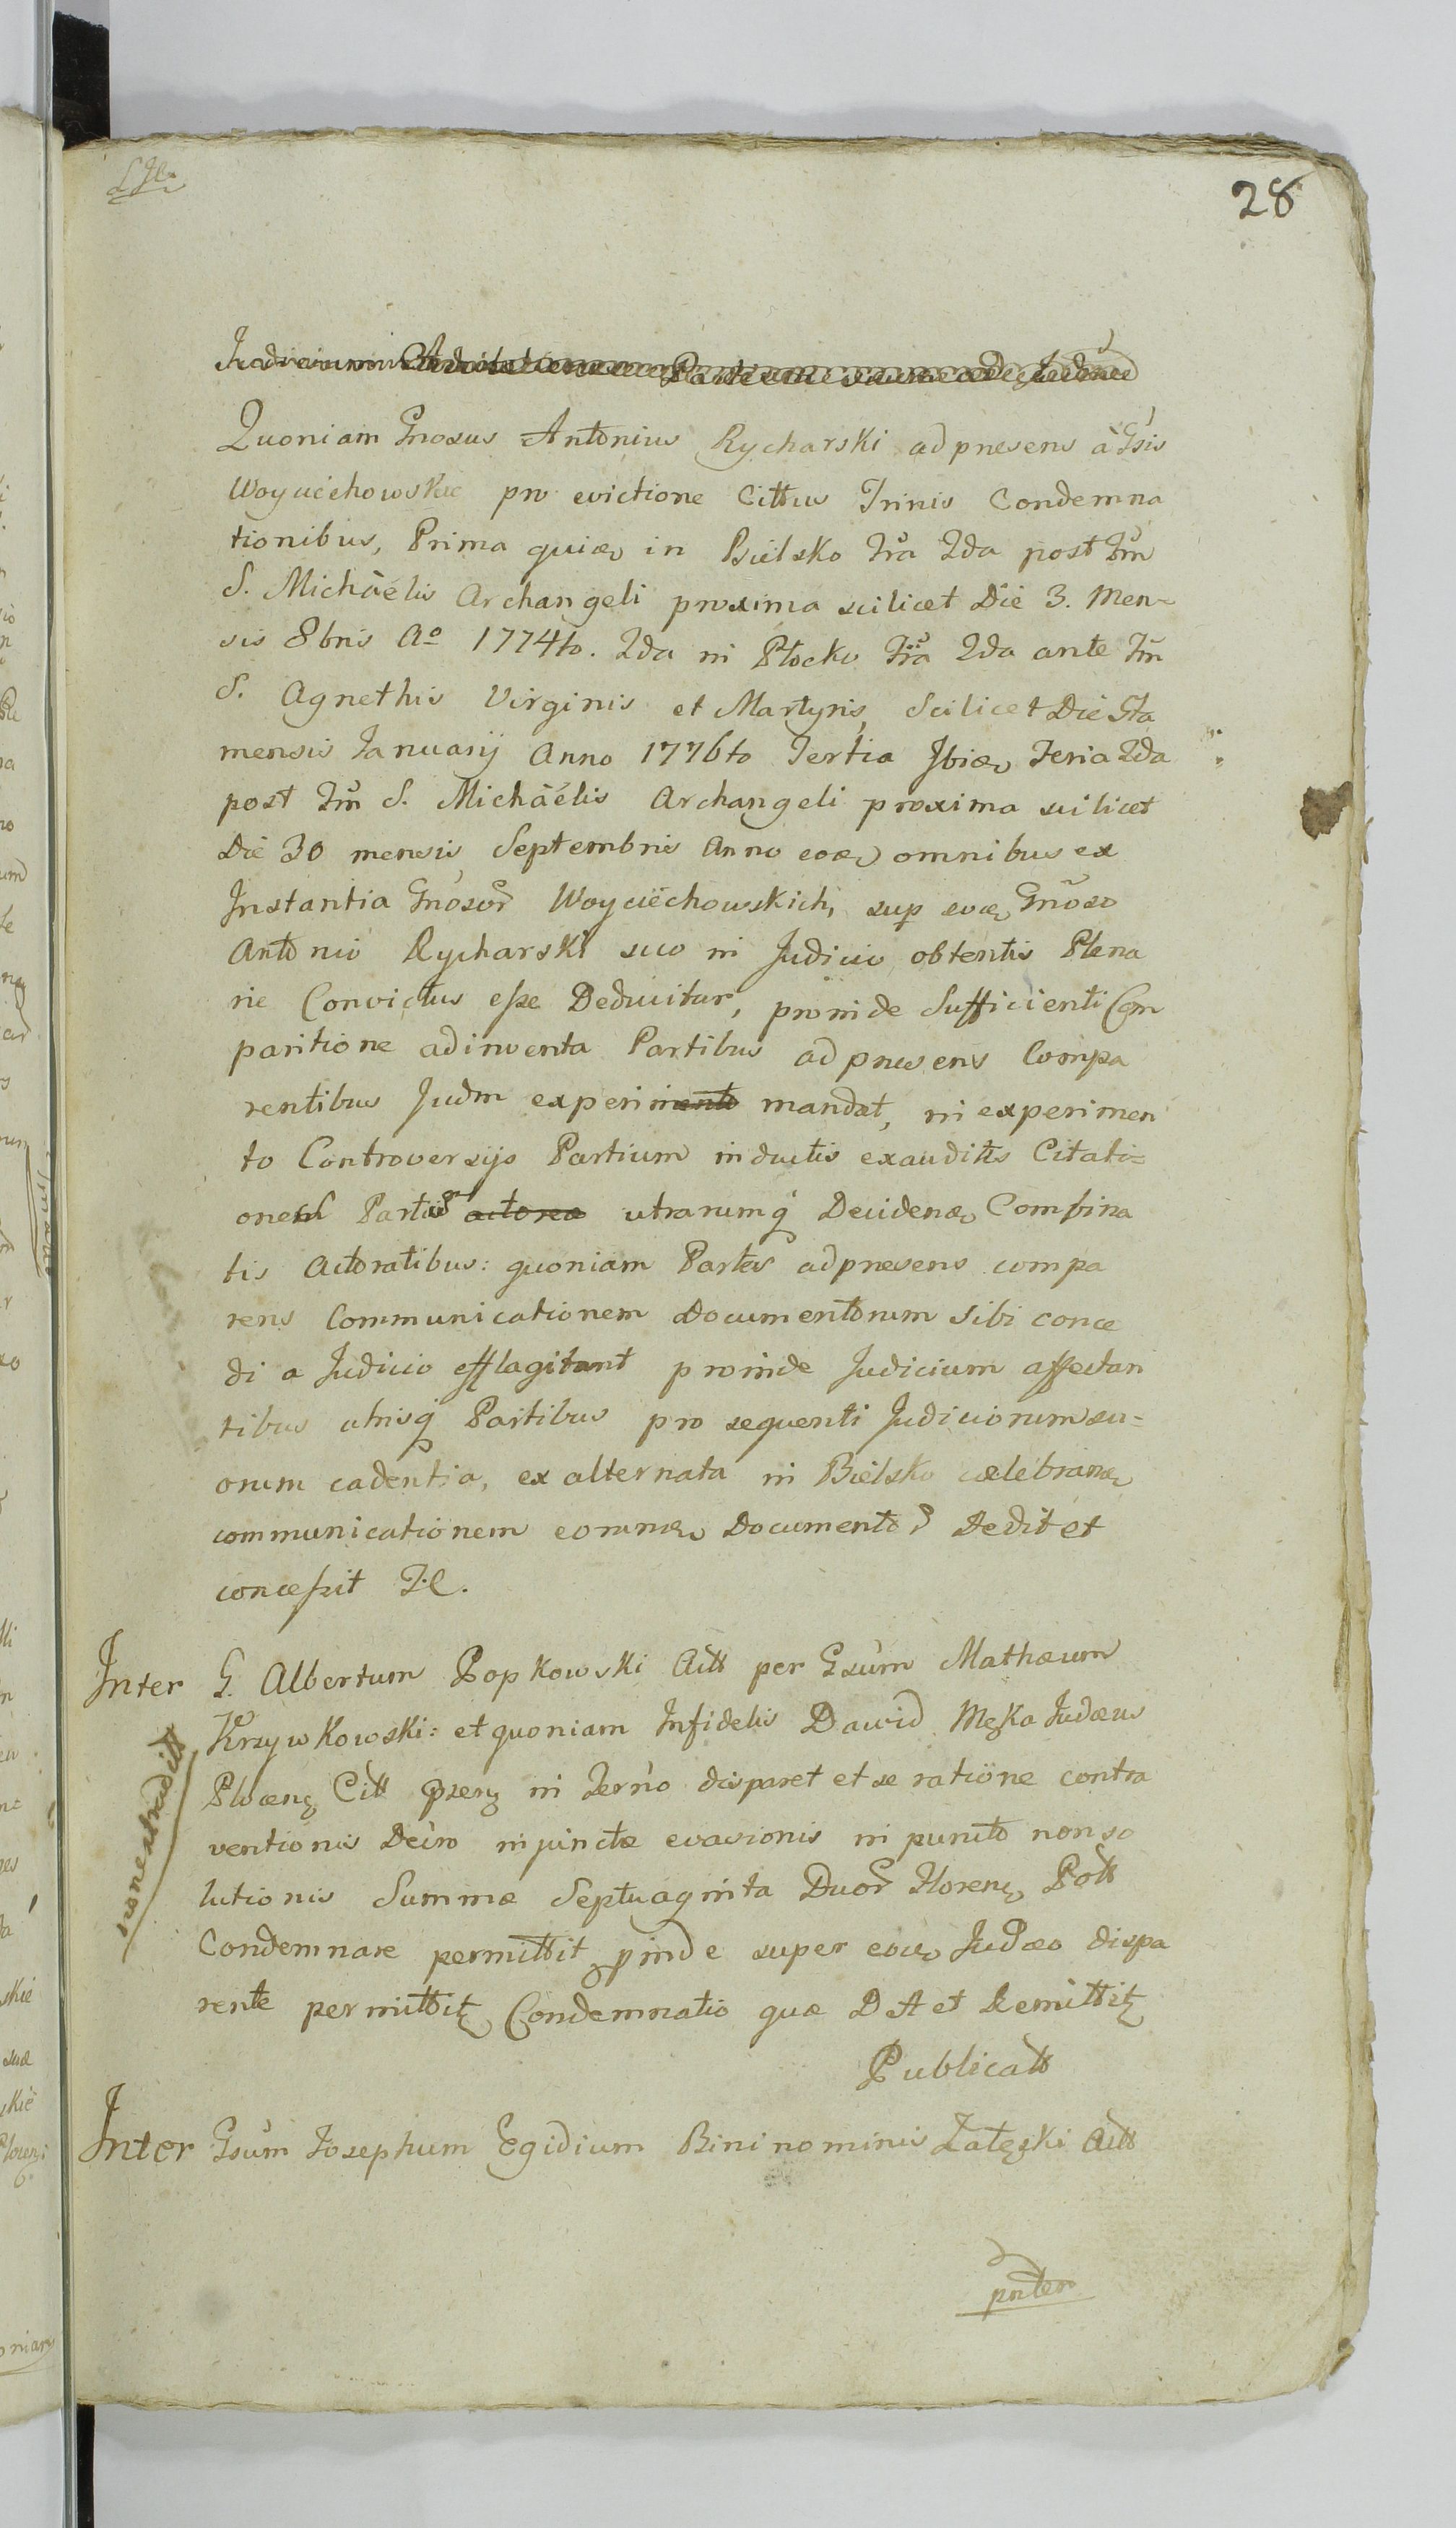 28
Judicium
Quoniam Gnosus Antonius Rycharski ad presens à Gsis
Woyciechowskie pro evictione Cittus Trinis Condemna
tionibus, Prima quidem in Bielsko Fra 2da post Fm
S. Michäelis Archangeli proxima scilicet Die 3. Men-
sis 8bris Ao 1774to. 2da in Płocko Fra 2da ante Fm
S. Agnethis Virginis et Martyris, Scilicet Die
mensis Januarij Anno 1776to Tertia Ibidem Feria 2da
post Fm S. Michäelis Archangeli proxima scilicet
Die 30 mensis Septembris Anno eodem omnibus ex
Instantia Gnosor Woyciechowskich, sup eodem Gnoso
Antonio Rycharski suo in Judicio obtentis Plena
rie Convictus esse Deducitur, proinde Sufficienti Com
paritione adinventa Partibus ad presens Compa
rentibus Judm experimento mandat, in experimen
to Controversijs Partium inductis exauditis Citati=
onem Partis actorea utrarumq Deciden Combina
tis Actoratibus: quoniam Partes ad presens compa
rens Communicationem Documentorum sibi conce
di a Judicio efflagitant proinde Judicium affectan
tibus utrisq Partibus pro sequenti Judiciorum su=
orum cadentia, ex alternata in Bielsko celebran
communicationem eorundem Documento Dedit et
concessit
Inter G. Albertum Popkowski Actt per Gsum Mathæum
Krzywkowski: et quoniam Infidelis Dawid Męka Judæus
Citt in Terno disparet et se ratiöne contra
ventionis Decro injunctæ evasionis in puncto non so
lutionis Summæ Septuaginta Duor Floren Poll
Condemnare permittit pinde super eodem Judæo dispa
rente permittitz Condemnatio quæ DA et Remittitz
Publicatt
Inter Gsum Josephum Egidium Bini nominis Załęski Actt